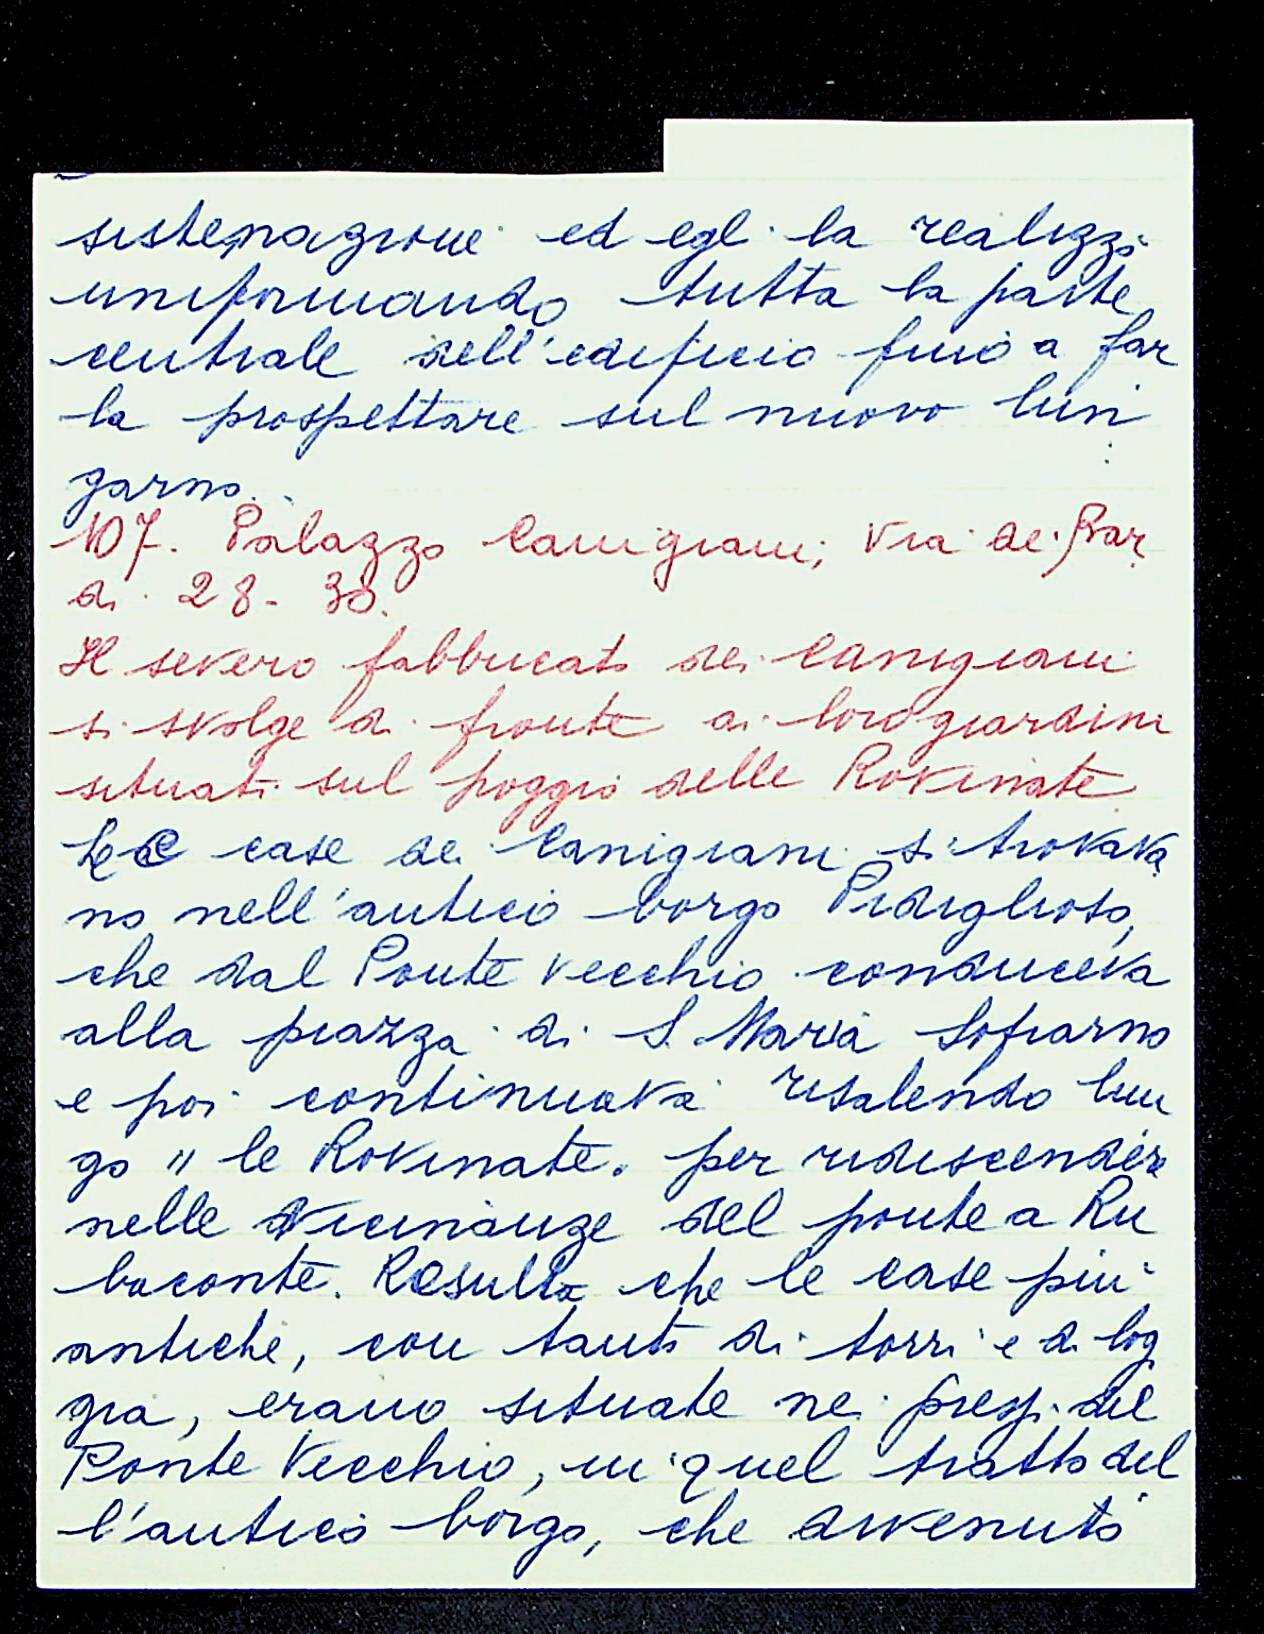 sistemazione ed egli la realizzò
uniformando tutta la parte
centrale dell'edificio fino a far
la prospettare sul nuovo lun
garno.
107. Palazzo Canigiani, Via de' Bar
di 28-30.
Il severo fabbricato dei Canigiani
si svolge di fronte ai loro giardini
situati sul poggio delle Rovinate
Le case dei Canigiani si trovava
no nell'antico borgo Pidiglioso,
che dal Ponte Vecchio conduceva
alla piazza di S. Maria Sofrarno
e poi continuava risalendo lun
go " le Rovinate. per ridiscender
nelle vicinanze del ponte a Ru
baconte. Risulta che le case più
antiche, con tanto di torri e di log
gia, erano situate nei pressi del
Ponte Vecchio, in quel tratto del
l'antico borgo, che divenuto